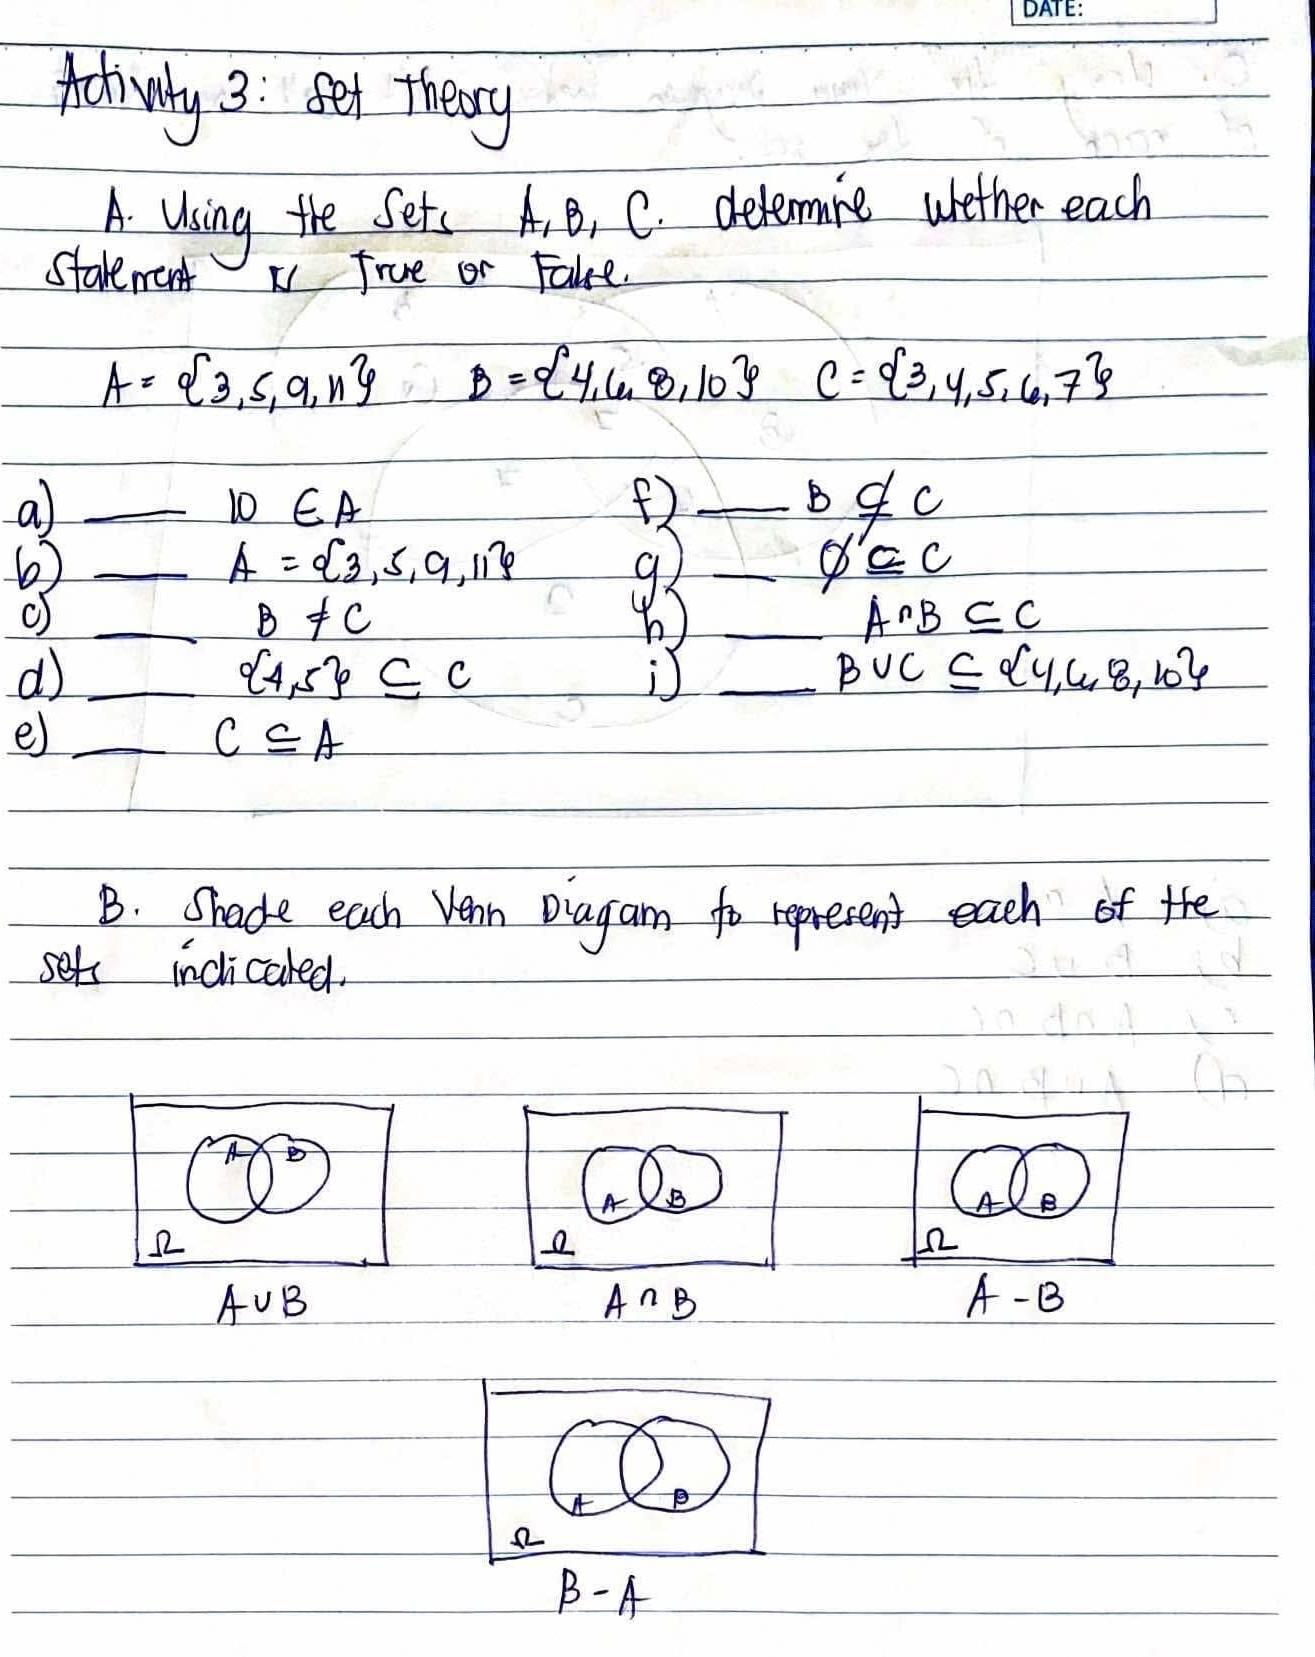 DATE:
Activity 3: Set Theory
A. Using the Sets A, B, C. determine whether each
statement is True or False.
A = {3,5,9,11} B = {4,6,8,10} C = {3,4,5,6,7}
a) ___ 10 ∈ A f) ___ B ⊄ C
b) ___ A = {3,5,9,11} g) ___ ∅ ⊆ C
c) ___ B ≠ C h) ___ A∩B ⊆ C
d) ___ {4,5} ⊆ C i) ___ B∪C ⊆ {4,6,8,10}
e) ___ C ⊆ A
B. Shade each Venn Diagam to represent each of the
sets indicated.
A B A B A B
Ω Ω Ω
A∪B A∩B A-B
A B
Ω
B-A